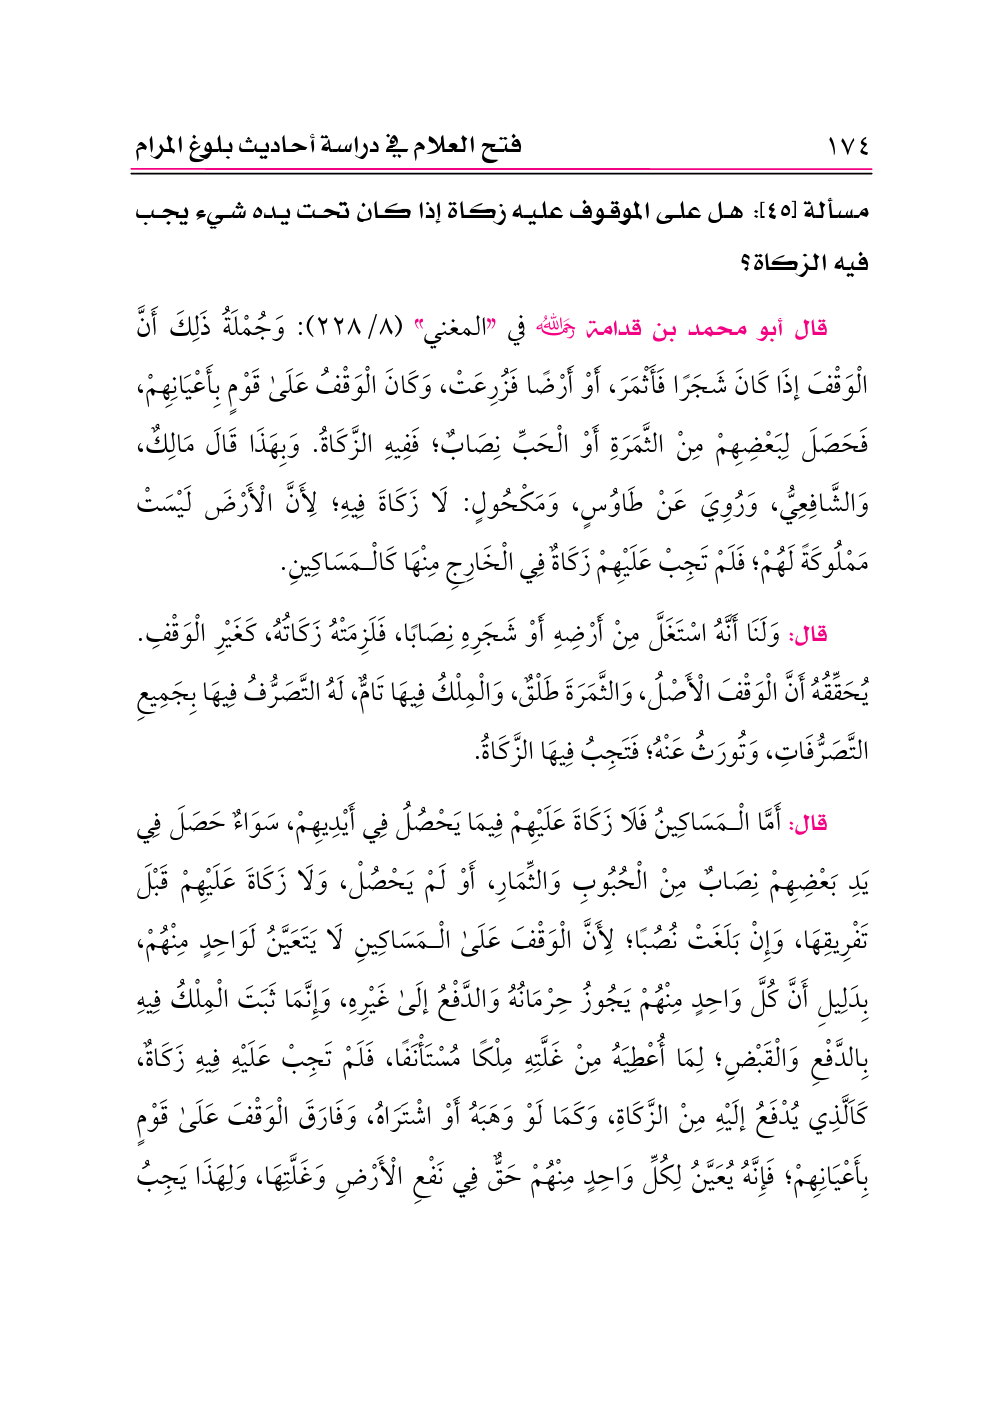 ١٧٤ فتح العلام في دراسة أحاديث بلوغ المرام
مسألة [٤٥]: هل على الموقوف عليه زكاة إذا كان تحت يده شيء يجب
فيه الزكاة؟
قال أبو محمد بن قدامة رحمه الله في "المغني" (٨/ ٢٢٨): وَجُمْلَةُ ذَلِكَ أَنَّ
الْوَقْفَ إذَا كَانَ شَجَرًا فَأَثْمَرَ، أَوْ أَرْضًا فَزُرِعَتْ، وَكَانَ الْوَقْفُ عَلَىٰ قَوْمٍ بِأَعْيَانِهِمْ،
فَحَصَلَ لِبَعْضِهِمْ مِنْ الثَّمَرَةِ أَوْ الْحَبِّ نِصَابٌ؛ فَفِيهِ الزَّكَاةُ. وَبِهَذَا قَالَ مَالِكٌ،
وَالشَّافِعِيُّ، وَرُوِيَ عَنْ طَاوُسٍ، وَمَكْحُولٍ: لَا زَكَاةَ فِيهِ؛ لِأَنَّ الْأَرْضَ لَيْسَتْ
مَمْلُوكَةً لَهُمْ؛ فَلَمْ تَجِبْ عَلَيْهِمْ زَكَاةٌ فِي الْخَارِجِ مِنْهَا كَالْـمَسَاكِينِ.
قال: وَلَنَا أَنَّهُ اسْتَغَلَّ مِنْ أَرْضِهِ أَوْ شَجَرِهِ نِصَابًا، فَلَزِمَتْهُ زَكَاتُهُ، كَغَيْرِ الْوَقْفِ.
يُحَقِّقُهُ أَنَّ الْوَقْفَ الْأَصْلُ، وَالثَّمَرَةَ طَلْقٌ، وَالْمِلْكُ فِيهَا تَامٌّ، لَهُ التَّصَرُّفُ فِيهَا بِجَمِيعِ
التَّصَرُّفَاتِ، وَتُورَثُ عَنْهُ؛ فَتَجِبُ فِيهَا الزَّكَاةُ.
قال: أَمَّا الْـمَسَاكِينُ فَلَا زَكَاةَ عَلَيْهِمْ فِيمَا يَحْصُلُ فِي أَيْدِيهِمْ، سَوَاءٌ حَصَلَ فِي
يَدِ بَعْضِهِمْ نِصَابٌ مِنْ الْحُبُوبِ وَالثِّمَارِ، أَوْ لَمْ يَحْصُلْ، وَلَا زَكَاةَ عَلَيْهِمْ قَبْلَ
تَفْرِيقِهَا، وَإِنْ بَلَغَتْ نُصُبًا؛ لِأَنَّ الْوَقْفَ عَلَىٰ الْـمَسَاكِينِ لَا يَتَعَيَّنُ لَوَاحِدٍ مِنْهُمْ،
بِدَلِيلِ أَنَّ كُلَّ وَاحِدٍ مِنْهُمْ يَجُوزُ حِرْمَانُهُ وَالدَّفْعُ إلَىٰ غَيْرِهِ، وَإِنَّمَا ثَبَتَ الْمِلْكُ فِيهِ
بِالدَّفْعِ وَالْقَبْضِ؛ لِمَا أُعْطِيَهُ مِنْ غَلَّتِهِ مِلْكًا مُسْتَأْنَفًا، فَلَمْ تَجِبْ عَلَيْهِ فِيهِ زَكَاةٌ،
كَاَلَّذِي يُدْفَعُ إلَيْهِ مِنْ الزَّكَاةِ، وَكَمَا لَوْ وَهَبَهُ أَوْ اشْتَرَاهُ، وَفَارَقَ الْوَقْفَ عَلَىٰ قَوْمٍ
بِأَعْيَانِهِمْ؛ فَإِنَّهُ يُعَيَّنُ لِكُلِّ وَاحِدٍ مِنْهُمْ حَقٌّ فِي نَفْعِ الْأَرْضِ وَغَلَّتِهَا، وَلِهَذَا يَجِبُ